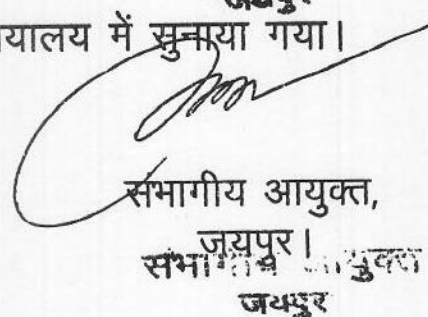 जयपुर
यालय में सुनाया गया।
संभागीय आयुक्त,
जयपुर।
संभागीय आयुक्त
जयपुर